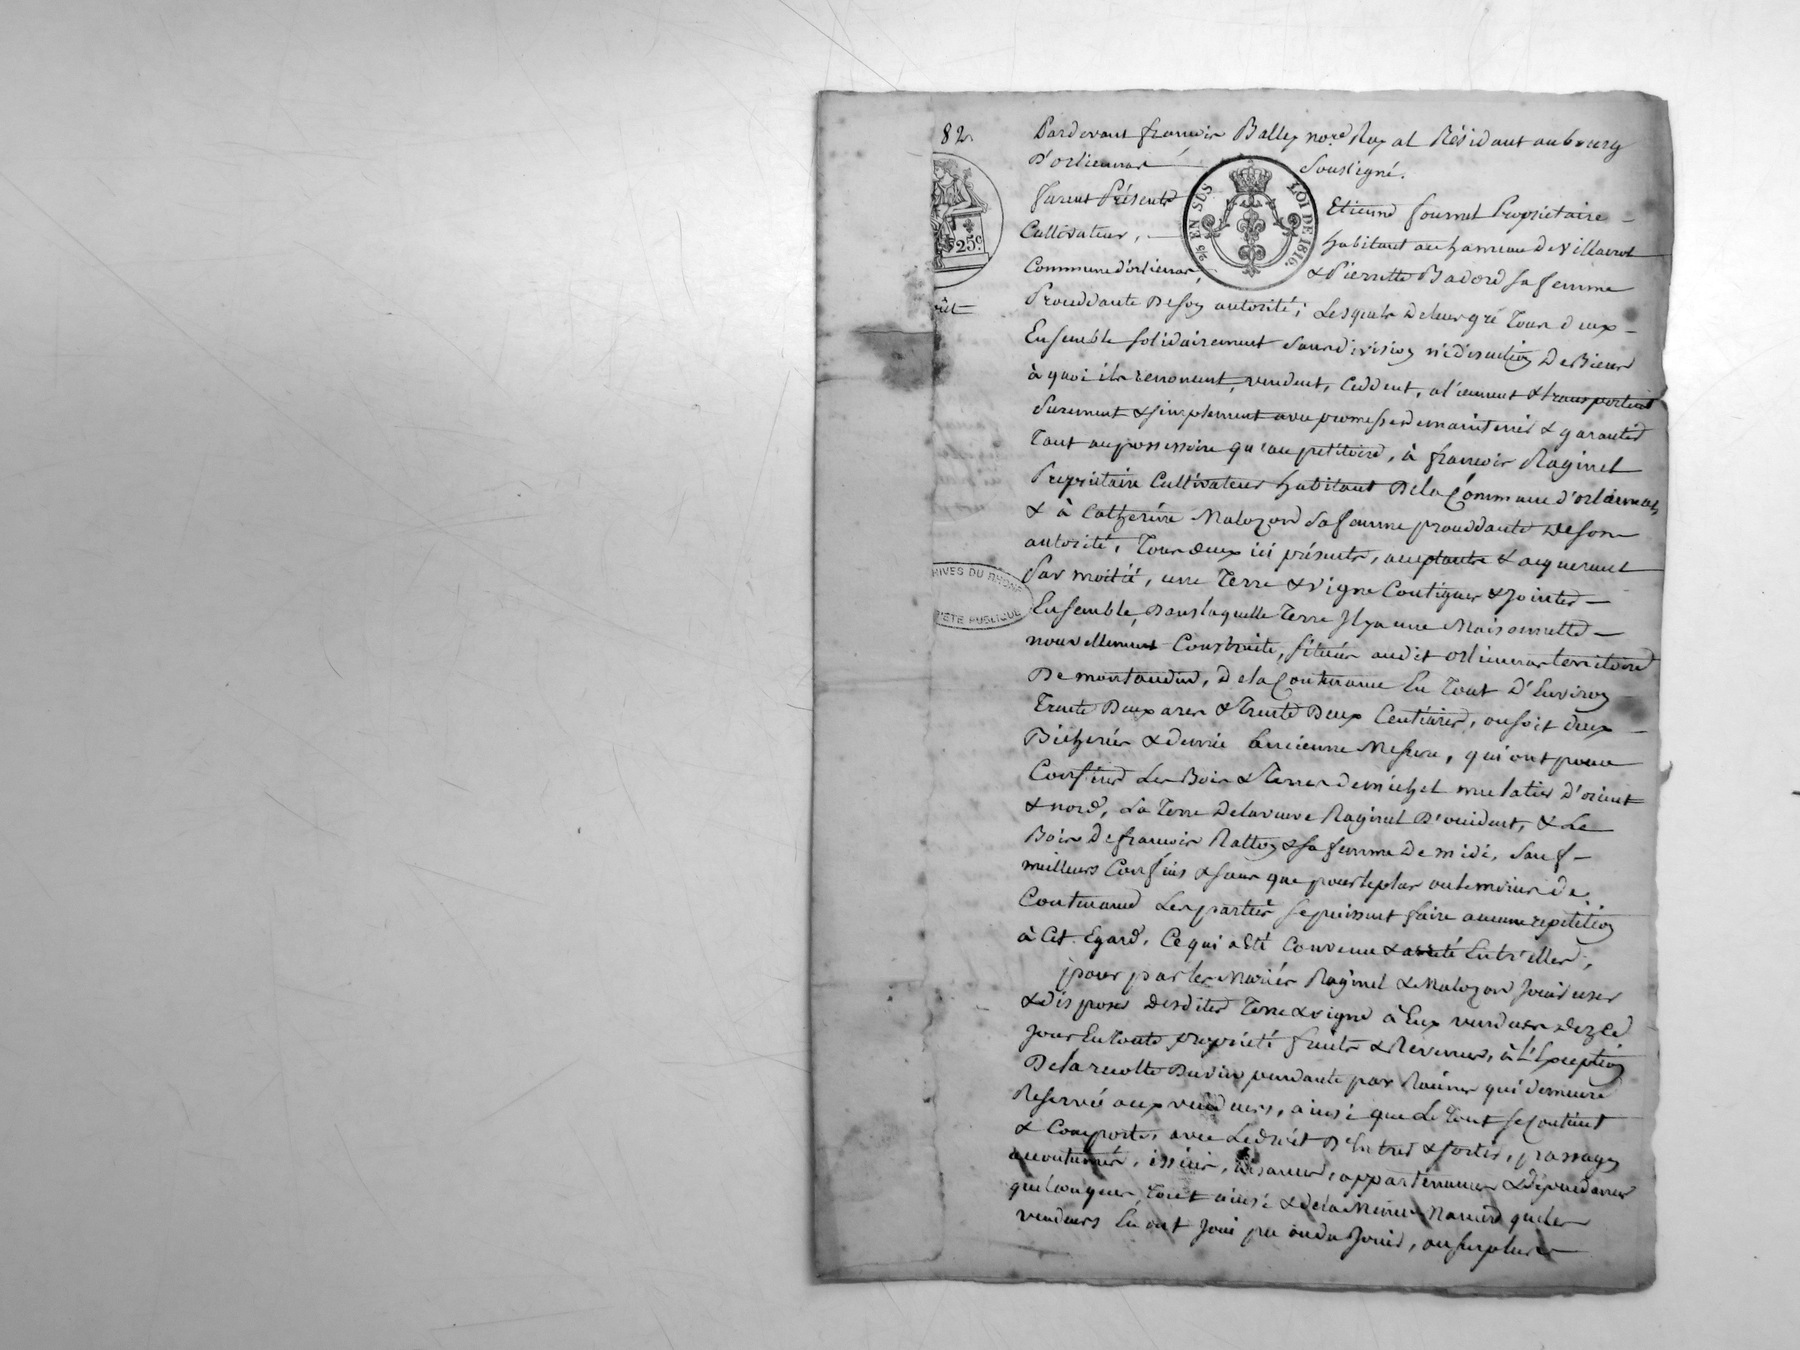 82.
Pardevant françois Balley no.re Royal Résidant au bourg
D'orliennas soussigné.
furent Présents Etienne fournel Propriétaire
Cultivateur, habitant au hameau de Villauvol
Commune d'orliennas, & Pierrette Badord sa femme
Prouddante De son autorité; Lesquels De leur gré Tous deux
Ensemble solidairement sans division ni discution De Biens
à quoi ils renoncent, vendent, Cèddent, aliennent & transportent
Purement & simplement avec promesse de maintenir & garantir
Tant au possessoire qu'au petitoire, à françois Raginel
Propriétaire Cultivateur habitant De la Commune d'orliennas,
& à Catherine Malozon sa femme prouddante De son
autorité, Tous deux ici présents, acceptants & acquerant
Par moitié, une Terre & vigne Contigues & Jointes
Ensemble, Dans laquelle Terre Il y a une Maisonnette
nouvellement Construite, située audit orliennas territoire
De montaudin, De la Contenance En Tout D'Environ
Trente Deux ares & Trente Deux Centiares, ou soit deux
Bicherées & demie ancienne Mesure, qui ont pour
Confins Les Bois & Terres de michel mulatier D'orient
& nord, La Terre De la veuve Raginel D'occident, & Le
Bois De françois Ratton & sa femme De midi, sauf
meilleurs Confins & sans que pour le plus ou le moins de
Contenance Les parties se puissent faire aucune répétition
à Cet Egard, Ce qui a Eté Convenu & arrêté Entr'elles;
pour par les Mariés Raginel & Malozon Jouir user
& disposer Desdites Terre & vigne à Eux vendues Dez Ce
Jour En toute propriété fruits & Revenus, à L'Exception
De la recolte Du vin pendante par Racines qui demeure
Reservée aux vendeurs, ainsi que Le Tout se Contient
& Comporte, avec Le droit D'Entrer & sortir, passages
accoutumés, issues, aisances, appartenances & Dépendances
quelconques, Tout ainsi & de la Même Manière que les
vendeurs En ont Joui pu ou du Jouir, au surplus
25c
EN SUS
LOI DE 1816.
HIVES DU RHONE
PIÉTÉ PUBLIQUE